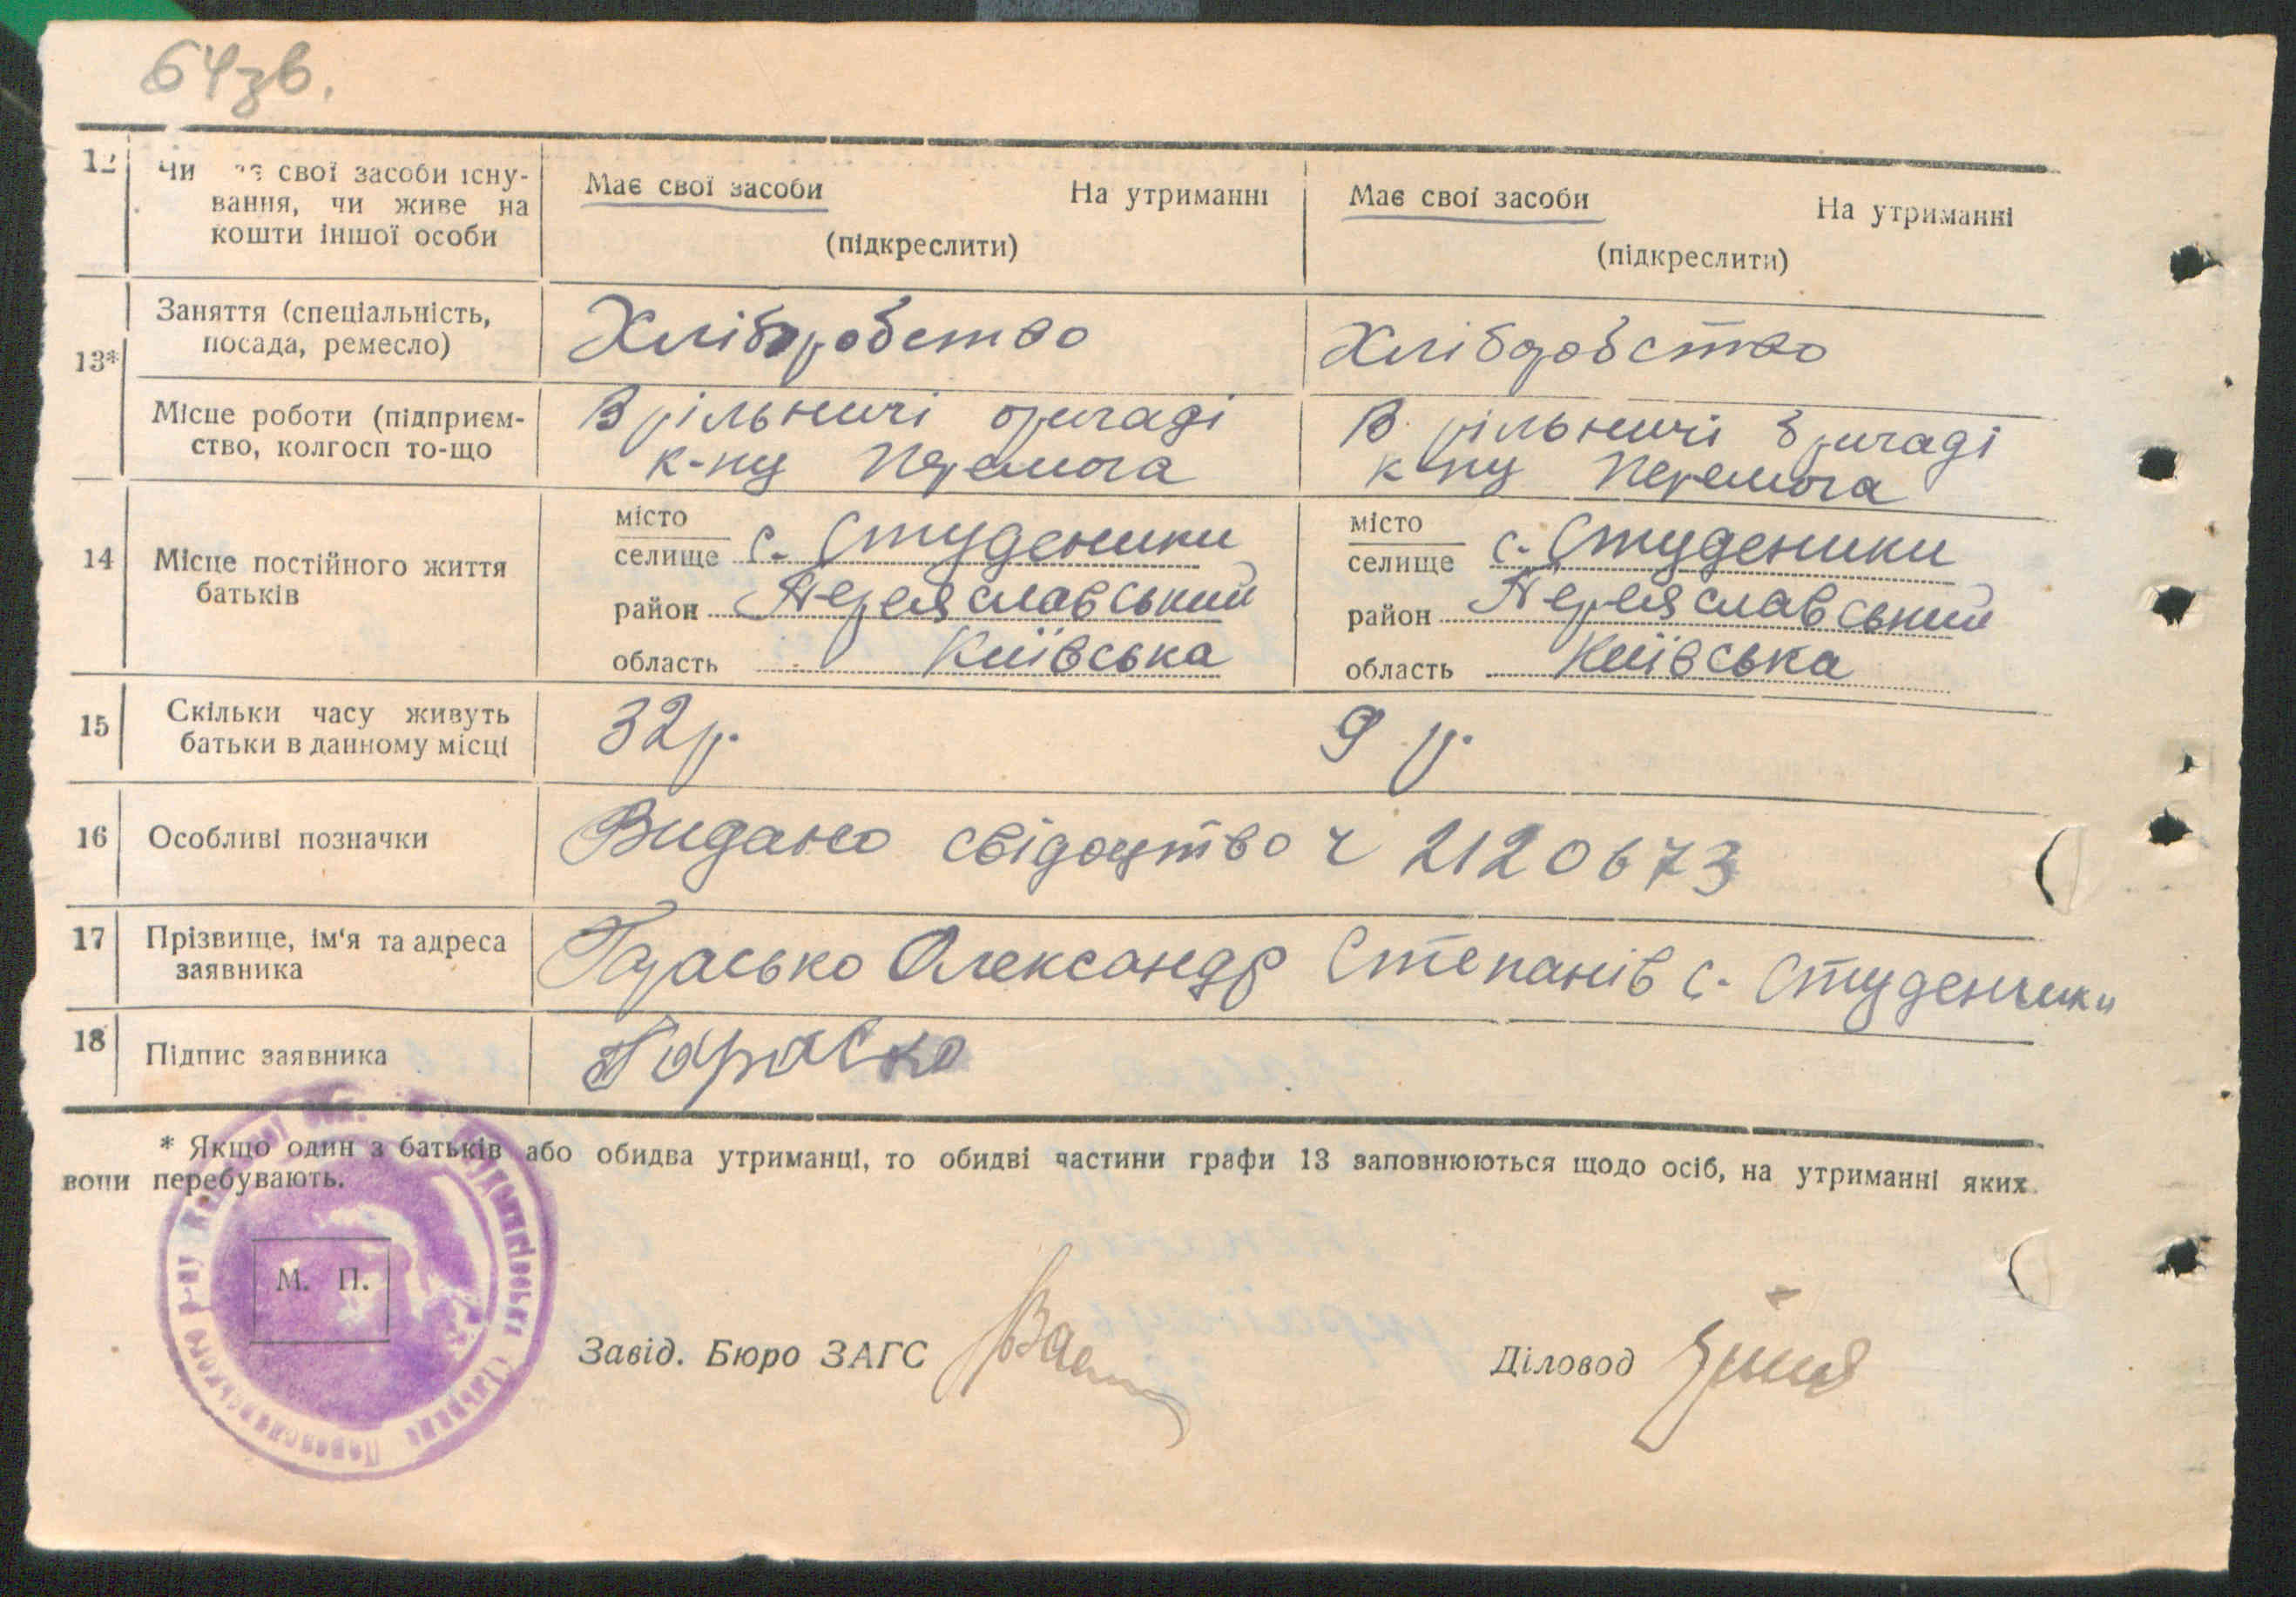 64зв.
12 Чи має свої засоби існу-
вання, чи живе на
кошти іншої особи
Має свої засоби На утриманні
(підкреслити)
Має свої засоби На утриманні
(підкреслити)
13*
Заняття (спеціальність,
посада, ремесло)
Хліборобство
Хліборобство
Місце роботи (підприєм-
ство, колгосп то-що
В рільничі бригаді
к-пу Перемога
В рільничі бригаді
к-пу Перемога
14 Місце постійного життя
батьків
місто
селище с. Студеники
район Переяславський
область Київська
місто
селище с. Студеники
район Переяславський
область Київська
15 Скільки часу живуть
батьки в данному місці
32 р.
9 р.
16 Особливі позначки
Видано свідоцтво ч 2120673
17 Прізвище, ім'я та адреса
заявника
Гарасько Олександр Степанів с. Студенники
18 Підпис заявника
Гараско
* Якщо один з батьків або обидва утриманці, то обидві частини графи 13 заповнюються щодо осіб, на утриманні яких
вони перебувають.
М. П.
Завід. Бюро ЗАГС
Діловод